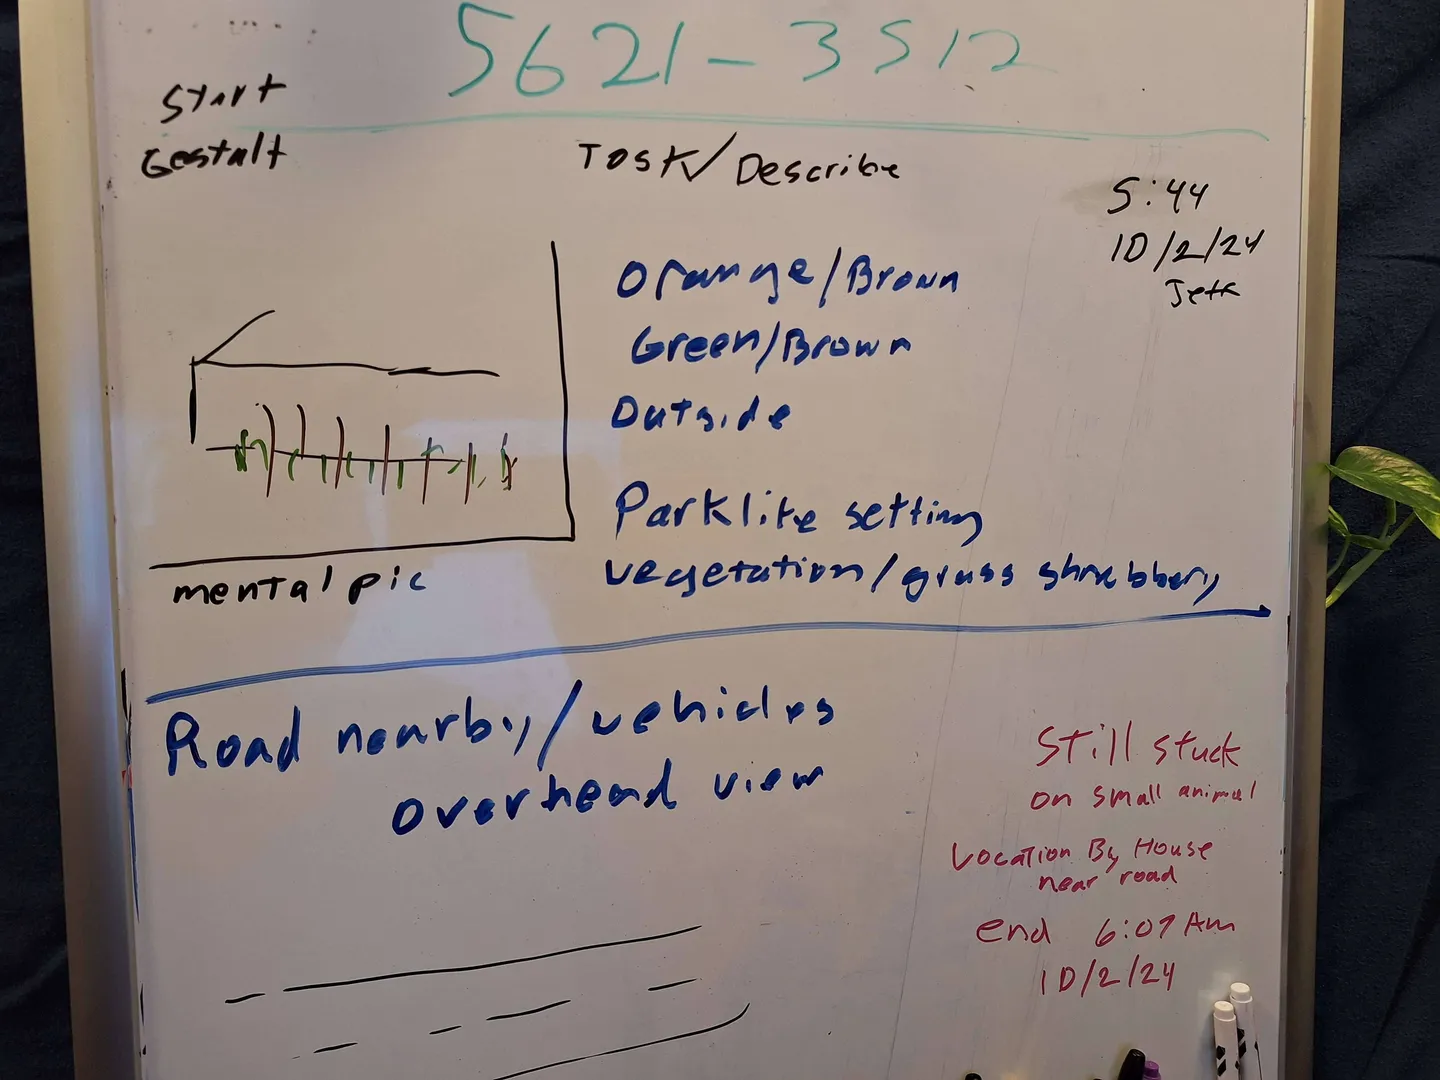 5621-3512
Start
Gestalt
Task/Describe
5:44
10/2/24
Jeff
Orange/Brown
Green/Brown
Outside
Parklike setting
vegetation/grass shrubbery
mental pic
Road nearby/vehicles
overhead view
Still stuck
on small animal
Location By House
near road
end 6:07 Am
10/2/24